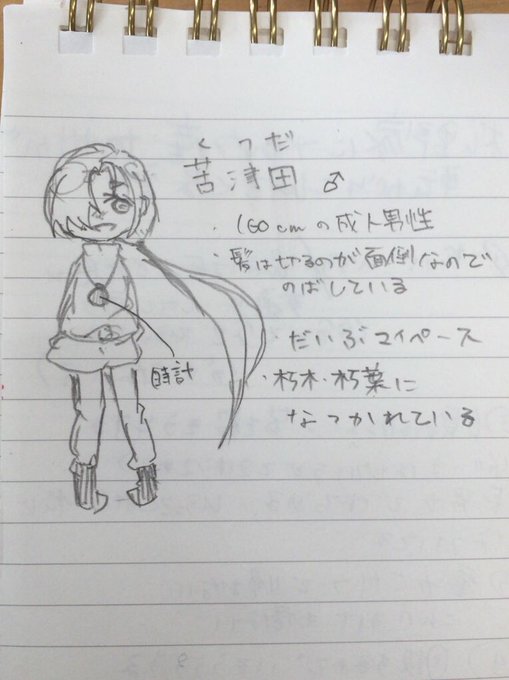 くつだ
苦津田 ♂
・160cmの成人男性
・髪は切るのが面倒なので
のばしている
・だいぶマイペース
時計
・朽木・朽葉に
なつかれている